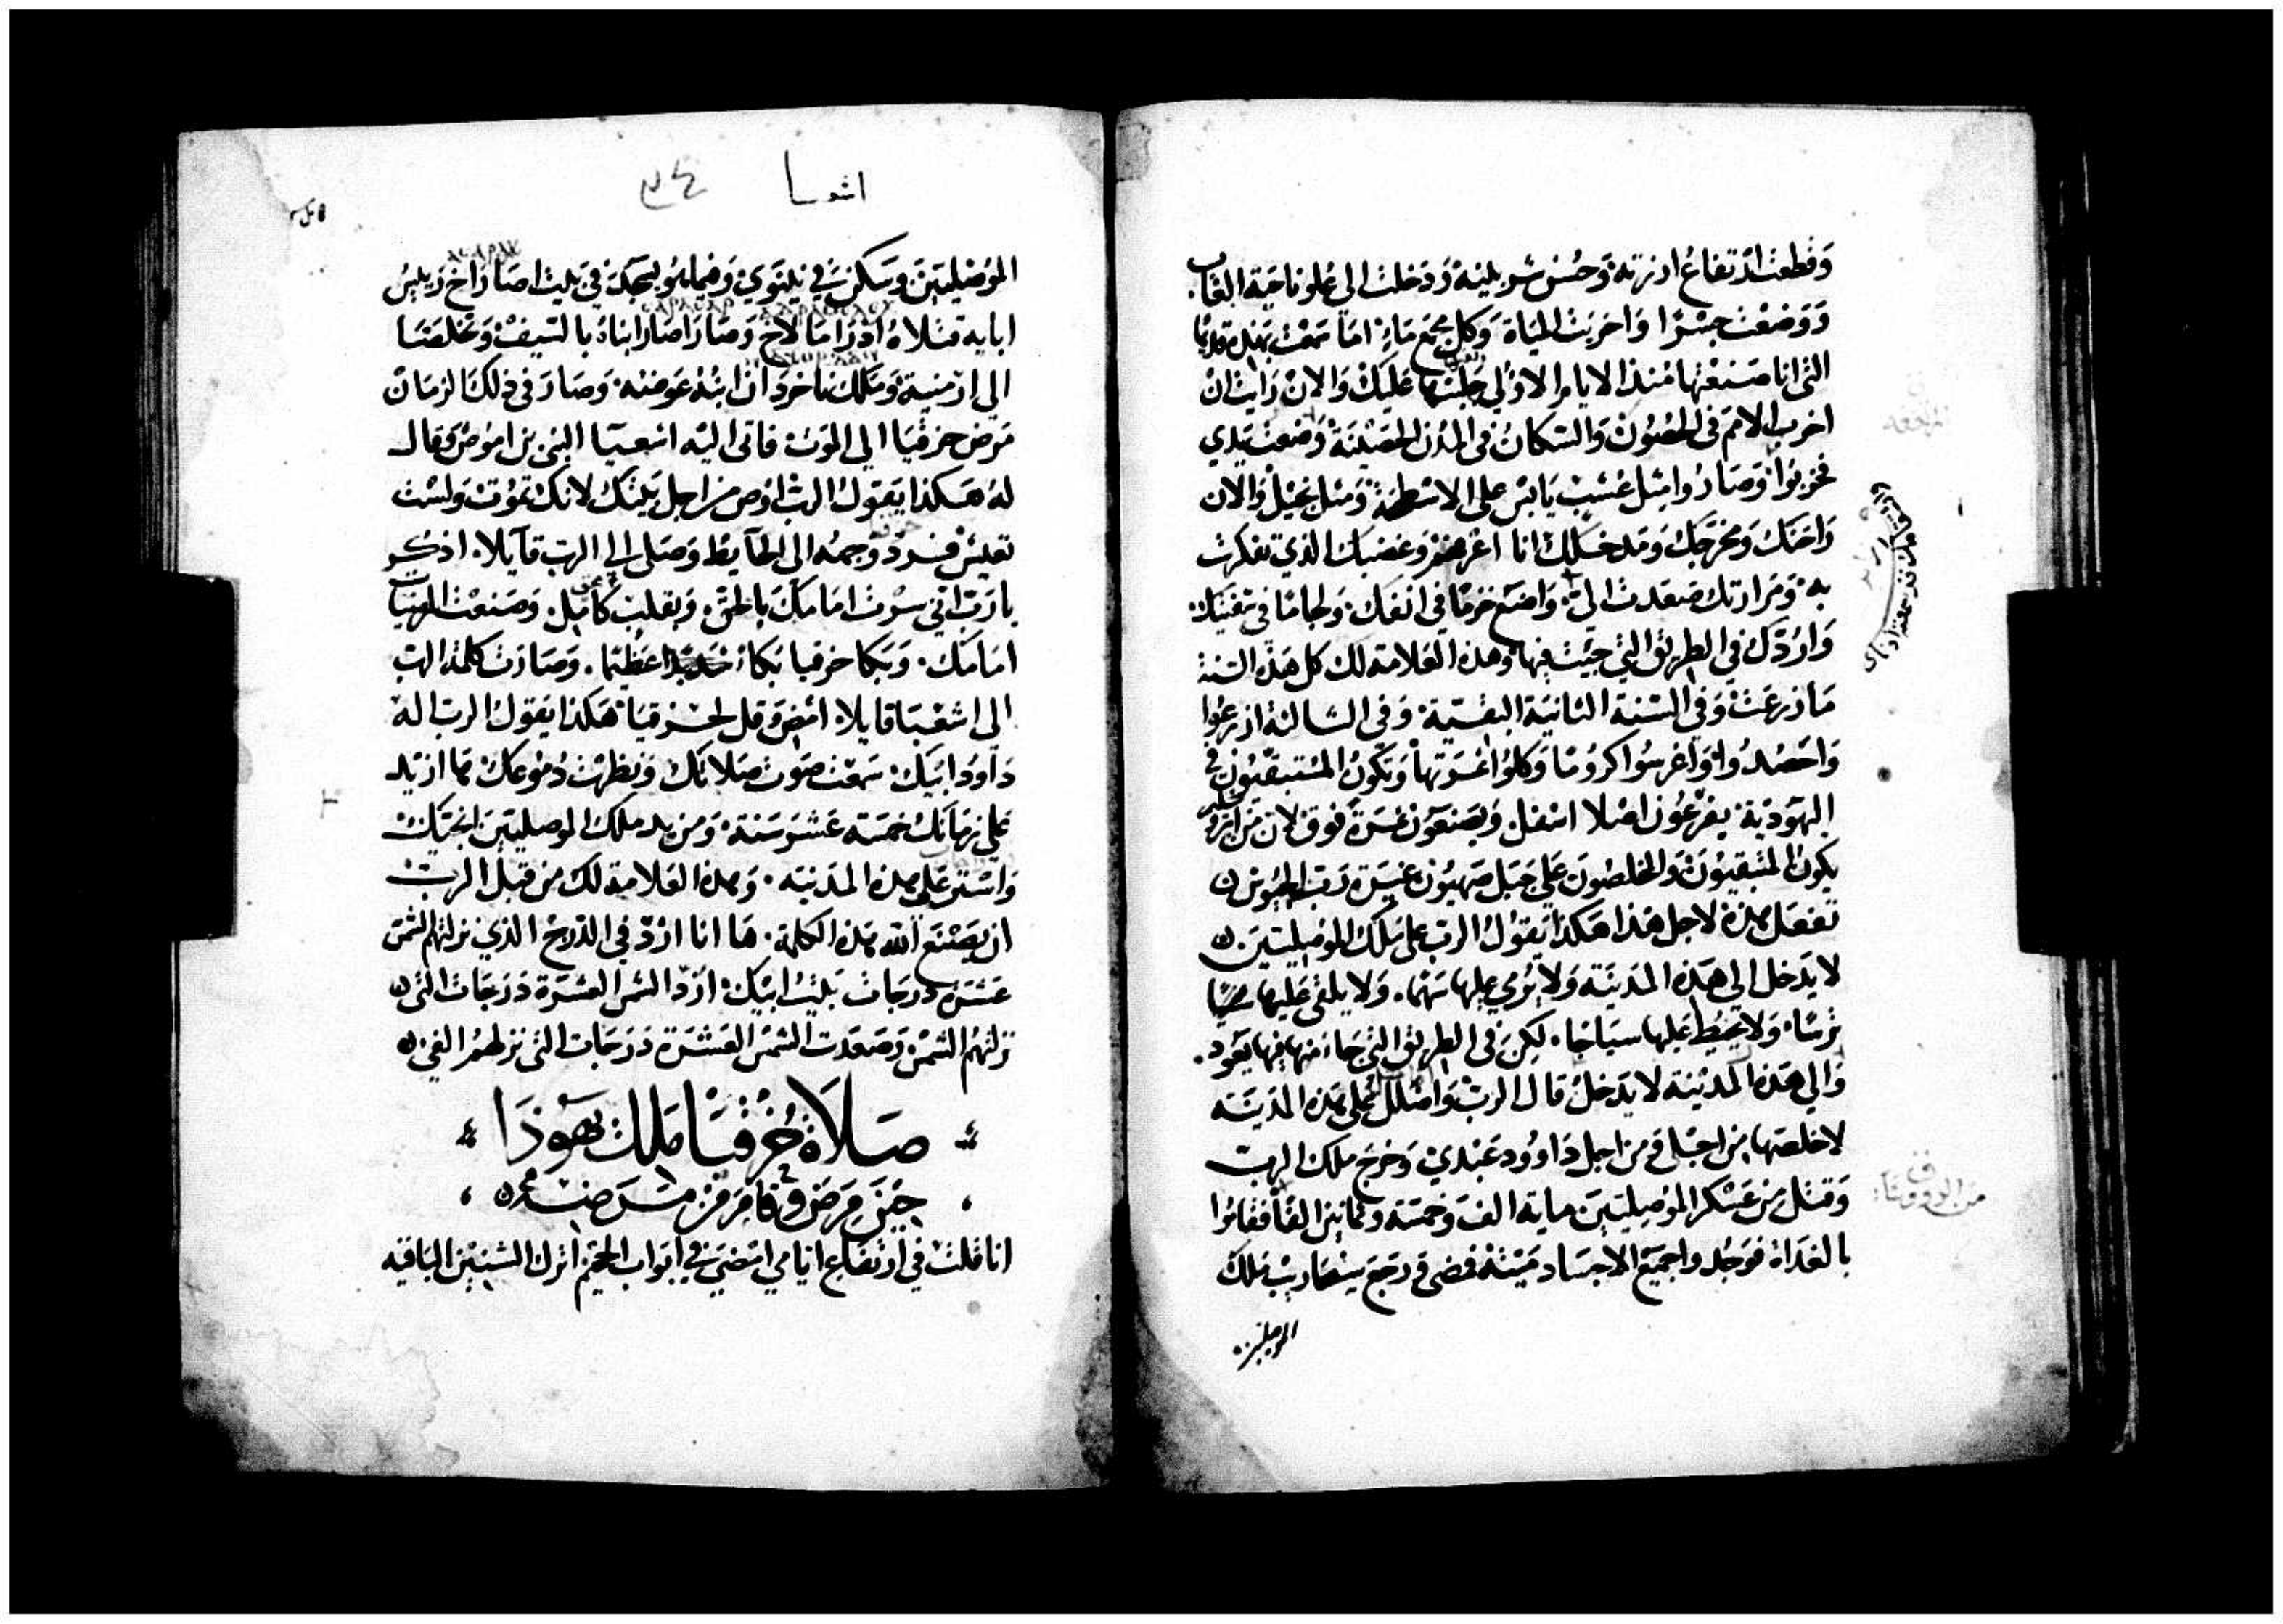 وَقطعت ارتفاعُ ارزته وَحُسْن شربينه وَدَخلت الي عُلو ناحَية الغاب
وَوَضعْت جسْرًا وَاخربَت المياة وَكل مجمَع مَاءٍ امَا سمعْت بهَذه قديمًا
التى انا صَنعْتها مُنذ الايام الاولى جَلبتها عَليكْ وَالانْ رَايت انْ
اخرب الامم فى الحصُونْ وَالسكانُ فى المُدن الحصَينَة وَضعت يَدي
فخربُوا وَصَارُوا مثل عُشبْ يَابسْ على الاسْطحَة وَمثل نجيل وَالان
رَاحَتك وَمخرجَك وَمَدخلك انا اعْرفهم وَغضبك الذي تفكرت
به وَمرَارتك صَعَدت الىّ وَاضع خزمًا فى انفكَ وَلجامًا فى شفتيك
وَاردّك فى الطريق التى جيت فيها وَهذه العَلامة لك كل هَذه السَنة
مَا زرعَت وَفى السّنة الثانيَة البقيّة وَفى الثالثة ازرعُوا
وَاحْصدُوا وَاغرسُوا كرومًا وَكلوُا ثمَرتها وَيكونُ المُستبقيُون فى
اليهودَية يفرعُون اصْلا اسْفل وَيصنعَون ثمَرة فوق لان من اورشليم
يكونُ المتبقيُونَ وَالمخلصُون عَلى جَبَل صَهيُون غيرَة رَب الجيُوش
تفعَل هذه لاجل هَذا هَكذا يَقولُ الرب على مَلك الموصَليّين
لا يدَخل الى هَذه المدَينَة وَلا يرُمي عليها سَهمًا وَلا يلقى عَليها
ترسًا وَلا يحَيط عَليها سيَاجًا لكن فى الطريق التى جَاء منها فيها يَعود
وَالى هَذه المدَينة لا يدَخل قالَ الربْ وَاظلل على هَذه المدَينَة
لاخلصهَا من اجْلى وَمن اجل دَاوُود عَبْدي وَخرَج ملك الرب
وَقتل من عَسْكر الموصليّينَ ماية الف وَخمسَة وَثمانين الفًا فقامُوا
بالغدَاة فوَجُدوا جميَع الاجسَاد مَيّتة فمضى وَرجَعَ سنحَاريبْ مَلك
الموصليين
اشعيا
الموُصَليّينَ وسَكن فى نينَوَي وَفيما هُو يسَجد فى بَيت اصَارَاخ رَييسُ
ابايه قتلاهُ ادرَامَالاخ وَصَارَاصَار ابناهُ بالسَيف وَتخلصَا
الى ارمنيَة وَمَلك نَاخردَان ابنهُ عوَضه وَصَارَ فى ذلك الزمَان
مَرضَ حزقيَا الى الموَت فاتى اليَه اشعيَا النبى بن امُوصْ وَقال
لهُ هَكذا يَقولُ الربْ اوُص من اجل بَيتك لانكْ تموُت وَلسْت
تعَيش فردّ وجهه الى الحايط وَصَلى الى الرب قايلا اذكر
يارَب انى سرْت امَامكَ بالحق وَبقلب كامَل وَصَنعْت المرضيَات
امَامَك وَبكا حزقيا بكاءً عَظيمًا وَصَارَت كلمة الرب
الى اشعْيَا قايلا امْض وَقل لحزقيا هَكذا يَقول الرب اله
دَاوُد ابيَك سَمعْت صَوت صَلاتك وَنظرتْ دُموُعكْ ها ازيد
عَلى زمَانكْ خمسَة عَشرَ سَنة وَمن يد ملك الموصليّينَ انجيك
وَاسْتر عَلى هذه المدَينَه وَهذه العَلامة لك من قبل الربّ
ان يصْنعَ الله هَذه الكلمة هَا انا اردّ فى الدرج الذي نزلتهم الشمسْ
عَشرَة دَرجَات بَيتُ ابيكْ اردّ الشمس العشرَة دَرَجَات التى
نزلتهُم الشمسْ وَصَعَدت الشمسَ العشْرَة دَرَجات التى نزلهم الفئ
صَلاة حزْقيَا مَلك يهَوذَا
حِينَ مَرضَ وَقامَ منْ مَرَضه
انا قلتْ فى ارتفاع ايامي امْضىَ فى ابوَاب الجحيْم اترك السّنيْن البَاقيه